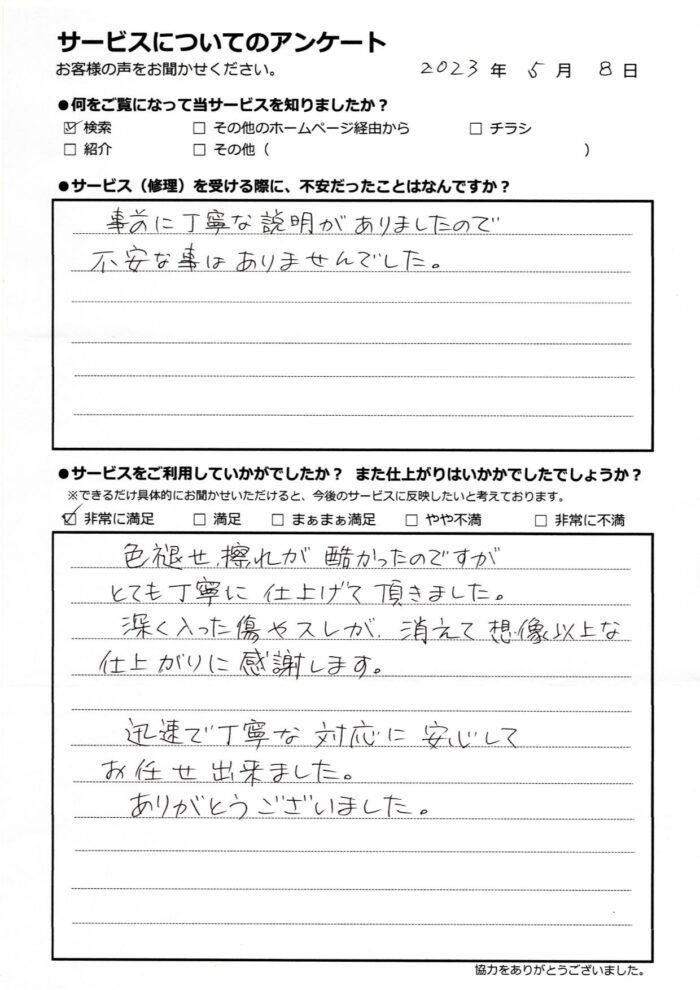 サービスについてのアンケート
お客様の声をお聞かせください。 2023年5月8日
●何をご覧になって当サービスを知りましたか？
☑検索 □その他のホームページ経由から □チラシ
□紹介 □その他（ ）
●サービス（修理）を受ける際に、不安だったことはなんですか？
事前に丁寧な説明がありましたので
不安な事はありませんでした。
●サービスをご利用していかがでしたか？ また仕上がりはいかかでしたでしょうか？
※できるだけ具体的にお聞かせいただけると、今後のサービスに反映したいと考えております。
☑非常に満足 □満足 □まぁまぁ満足 □やや不満 □非常に不満
色褪せ、擦れが酷かったのですが
とても丁寧に仕上げて頂きました。
深く入った傷やスレが、消えて想像以上な
仕上がりに感謝します。
迅速で丁寧な対応に安心して
お任せ出来ました。
ありがとうございました。
協力をありがとうございました。